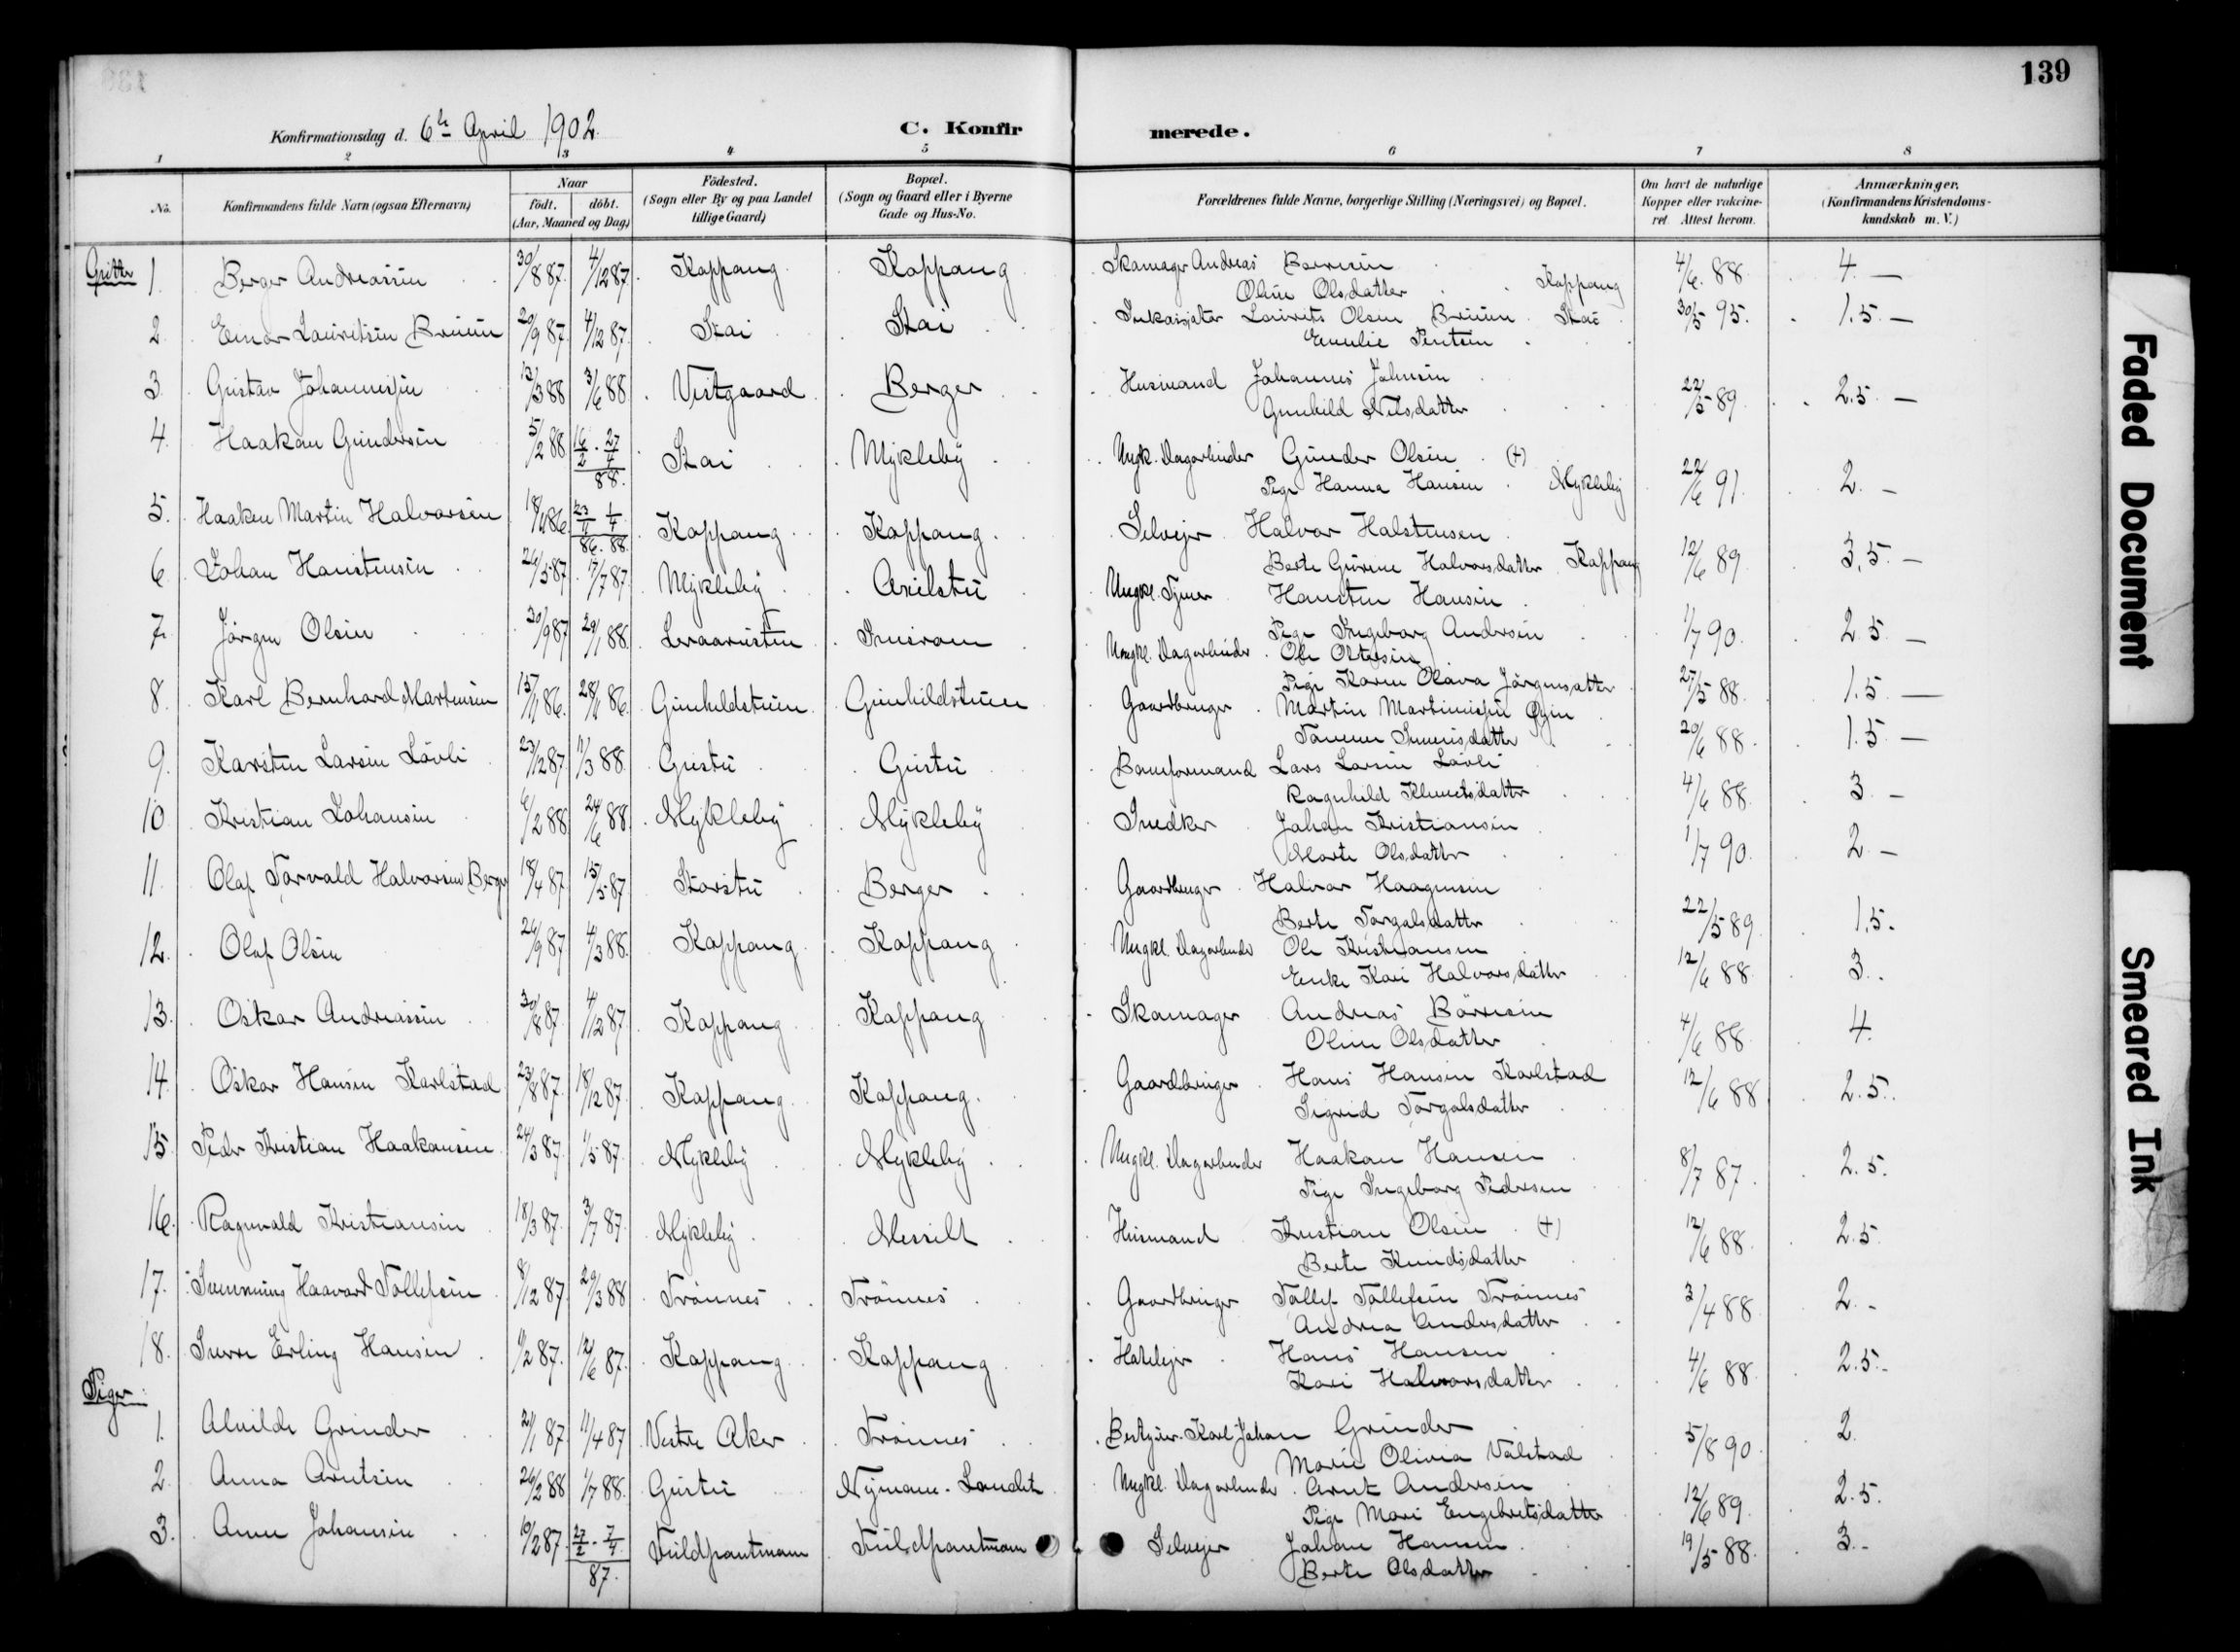 139
Konfirmationsdag d. 6te April 1902.
C. Konfirmerede.
1 2 3 4 5 6 7 8
No. Konfirmandens fulde Navn (ogsaa Efternavn) Naar födt. döbt. (Aar, Maaned og Dag) Födested. (Sogn eller By og paa Landet tillige Gaard) Bopæl. (Sogn og Gaard eller i Byerne Gade og Hus-No. Forældrenes fulde Navne, borgerlige Stilling (Næringsvei) og Bopæl. Om havt de naturlige Kopper eller vakcineret. Attest herom. Anmærkninger. (Konfirmandens Kristendomskundskab m. V.)
Gutter
1. Berger Andreassen 30/8 87. 4/12 87. Koppang Koppang Skomager Andreas Børresen 4/6. 88 4. —
Oline Olsdatter Koppang
2. Einar Lauritsen Bruun 20/9 87. 4/12 87. Stai Stai Lauritz Olsen Bruun Stai 30/5 95. 1.5. —
Emilie
3. Gustav Johannesen 13/3 88 3/6 88. Vestgaard Berger Husmand Johannes Johnsen 22/5 89. 2.5 —
Gunhild Nilsdatter
4. Haakon Gundersen 5/2 88. 16/2 . 27/4 88. Stai Mykleby Ungk. Dagarbeider Gunder Olsen (+)
Pige Hanna Hansen Mykleby 22/6 91 2. —
5. Haaken Martin Halvorsen 18/11 86 Koppang Koppang. Selveier Halvor Halstensen
86. 88. Berte Gurine Halvorsdatter Koppang 12/6 89 3,5. —
6. Johan Hanstensen 24/5 87 17/7 87. Mykleby Ungkl. Hansten Hansen
Pige Ingeborg Andersen 1/7 90. 2.5 —
7. Jörgen Olsen 30/9 87 29/1 88. Ungkl. Dagarbeider Ole
Pige Karen Olava Jörgensdatter 27/5 88. 1.5 —
8. Karl Bernhard Martinsen 15/11 86. Gunhildstuen Gunhildstuen Gaardbruger Martin Martinissen Øyen
20/6 88. 1.5 —
9. Karsten Larsen Lövli 23/12 87. 11/3 88. Gustu Gustu Baneformand Lars Larsen Lövli
Ragnhild Klemetsdatter 4/6 88. 3 —
10 Kristian Johansen 6/2 88 24/6 88. Mykleby Mykleby Snedker Johan Kristiansen
Marte Olsdatter 1/7 90. 2 —
11. Olaf Torvald Halvorsen Berger 18/4 87 15/5 87 Storstu Berger Gaardbruger Halvor Haagensen
Berte Torgalsdatter 22/5 89. 1.5.
12. Olaf Olsen 24/9 87 4/3 88. Koppang Koppang Ungkl. Dagarbeider Ole Kristiansen
Enke Kari Halvorsdatter 12/6 88. 3.
13. Oskar Andreassen 30/8 87 4/12 87. Koppang Koppang Skomager Andreas Børresen
Oline Olsdatter 4/6 88. 4.
14. Oskar Hansen Karlstad 23/8 87. 18/12 87. Koppang Koppang. Gaardbruger Hans Hansen Karlstad
Sigrid Torgalsdatter 12/6 88. 2.5.
15 Peder Kristian Haakonsen 24/3 87. 1/5 87. Mykleby Mykleby Ungkl. Dagarbeider Haakon Hansen
Pige Ingeborg Pedersen 8/7 87. 2.5.
16. Ragnvald Kristiansen 18/3 87. 3/7 87. Mykleby Messelt Husmand Kristian Olsen (+) 12/6 88. 2.5.
Berte Knudsdatter
17. Svenning Haavard Tollefsen 8/12 87. 29/3 88 Trönnes Trönnes Gaardbruger Tollef Tollefsen Trönnes 3/4 88. 2. -
Andrea Andersdatter
18. Sverre Erling Hansen 1/2 87. 12/6 87. Koppang Koppang Hoteleier Hans Hansen 4/6 88. 2.5.-
Kari Halvorsdatter
Piger:
1. Alvilde Grinder 21/1 87. 11/4 87 Vestre Aker Trönnes Karl Johan Grinder 5/8 90. 2.
Marie Olivia Valstad
2. Anna Arntsen 26/2 88 1/7 88. Gustu Ungkl. Dagarbeider Arnt Andersen 12/6 89. 2.5.
Pige Mari Engebretsdatter
3. Anne Johansen 10/2 87. 27/2 . 7/4 87. Fuldpantmoen Fuldpantmoen Selveier Johan Hansen 19/5 88. 3.-
Berte Olsdatter
Faded Document
Smeared Ink